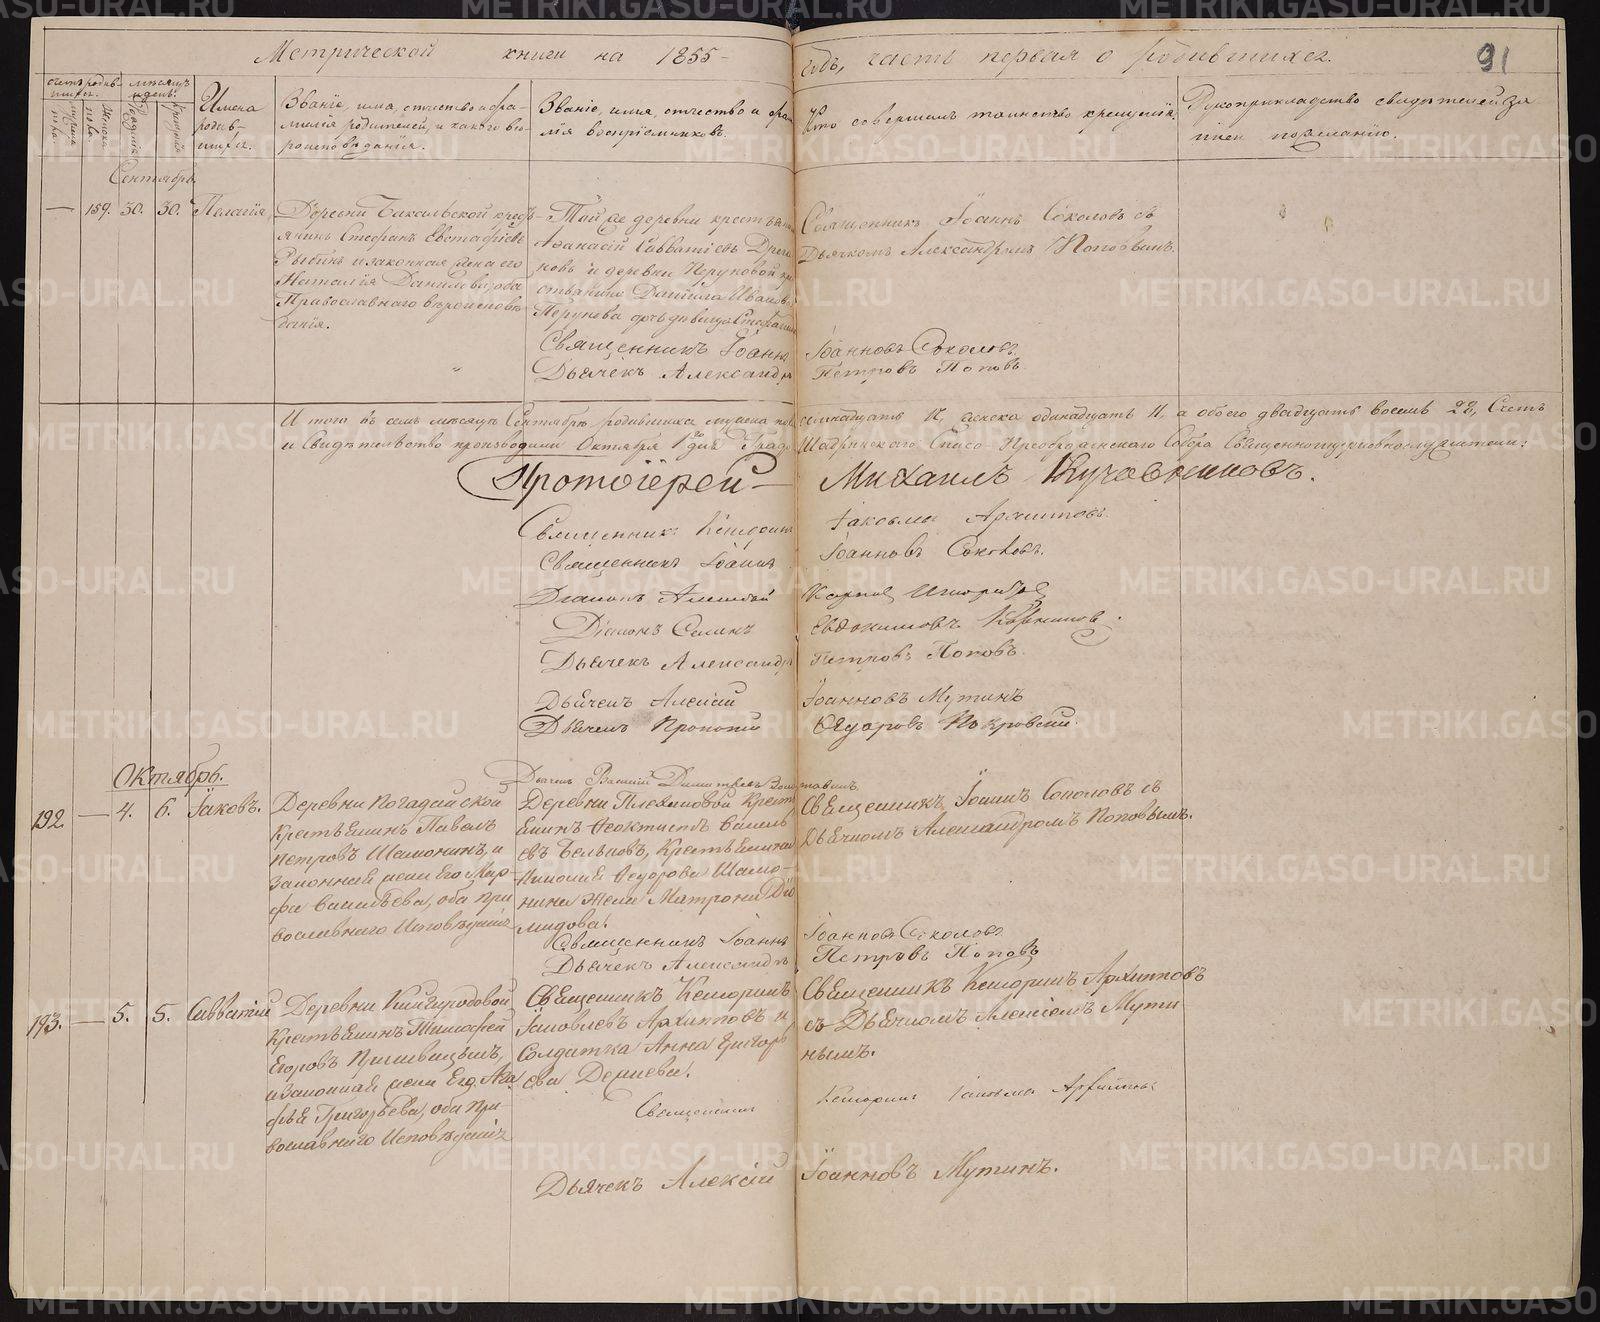 Метрической книги на 1855 годъ, часть первая о родившихся.
91
Счетъ родившихся.
Мѣсяцъ и день.
Имена родившихся.
Званіе, имя, отчество и фамилія родителей, и какого вѣроисповѣданія.
Званіе, имя, отчество и фамилія воспріемниковъ.
Кто совершалъ таинство крещенія.
Рукоприкладство свидѣтелей записи по желанію.
Сентябрь.
— 159. 30. 30. Пелагія
Деревни Бакальской крестьянинъ Стефанъ Евстафіевъ
Рыбинъ и законная жена его
Наталія Данилова, оба
Православнаго вѣроисповѣданія.
Той же деревни крестьянинъ
Аѳанасій Савватіевъ
и деревни Перуновой
Данила Ивановъ
Перунова дочь дѣвица
Священникъ Іоаннъ Соколовъ съ
Дьячкомъ Александромъ Поповымъ.
Священникъ Іоаннъ Іоанновъ Соколовъ
Дьячекъ Александръ Петровъ Поповъ
Итого въ семъ мѣсяцѣ Сентябрѣ родившихся мужска пола семнадцать 17, женска одинадцать 11, а обоего двадцать восемь 28, Счетъ
и Свидѣтельство производили Октября 1 дня Градо Шадринскаго Спасо-Преображенскаго Собора Священноцерковнослужители:
Протоіерей Михаилъ
Священникъ Іаковлевъ Архиповъ.
Священникъ Іоаннъ Іоанновъ Соколовъ.
Діаконъ Алексѣй
Діаконъ Евдокимовъ
Дьячекъ Александръ Петровъ Поповъ.
Дьячекъ Алексій Іоанновъ Мутинъ
Дьячекъ Прокопій Ѳедоровъ Покровскій.
Дьячекъ Василій
Октябрь.
192. — 4. 6. Іаковъ.
Деревни Погадайской
Крестьянинъ Павелъ
Петровъ Шамонинъ, и
Законная жена Его Марфа Васильева, оба православнаго Исповѣданія
Деревни Плехановой Крестьянинъ Ѳеоктистъ Васильевъ Бельковъ, Крестьянина
Ѳедорова Шамонина Жена Матрона Діомидова.
Священникъ, Іоаннъ Соколовъ съ
Дьячкомъ Александромъ Поповымъ.
Священникъ Іоаннъ Іоанновъ Соколовъ.
Дьячекъ Александръ Петровъ Поповъ
193. — 5. 5. Савватій
Деревни
Крестьянинъ Тимофей
Егоровъ
и законная жена Его Агафья Григорьева, оба православнаго Исповѣданія
Священникъ
Іаковлевъ Архиповъ и
Солдатка Анна Григорьева
Священникъ Архиповъ
съ Дьячкомъ Алексіемъ Мутинымъ.
Священникъ
Дьячекъ Алексій Іоанновъ Мутинъ.
METRIKI.GASO-URAL.RU